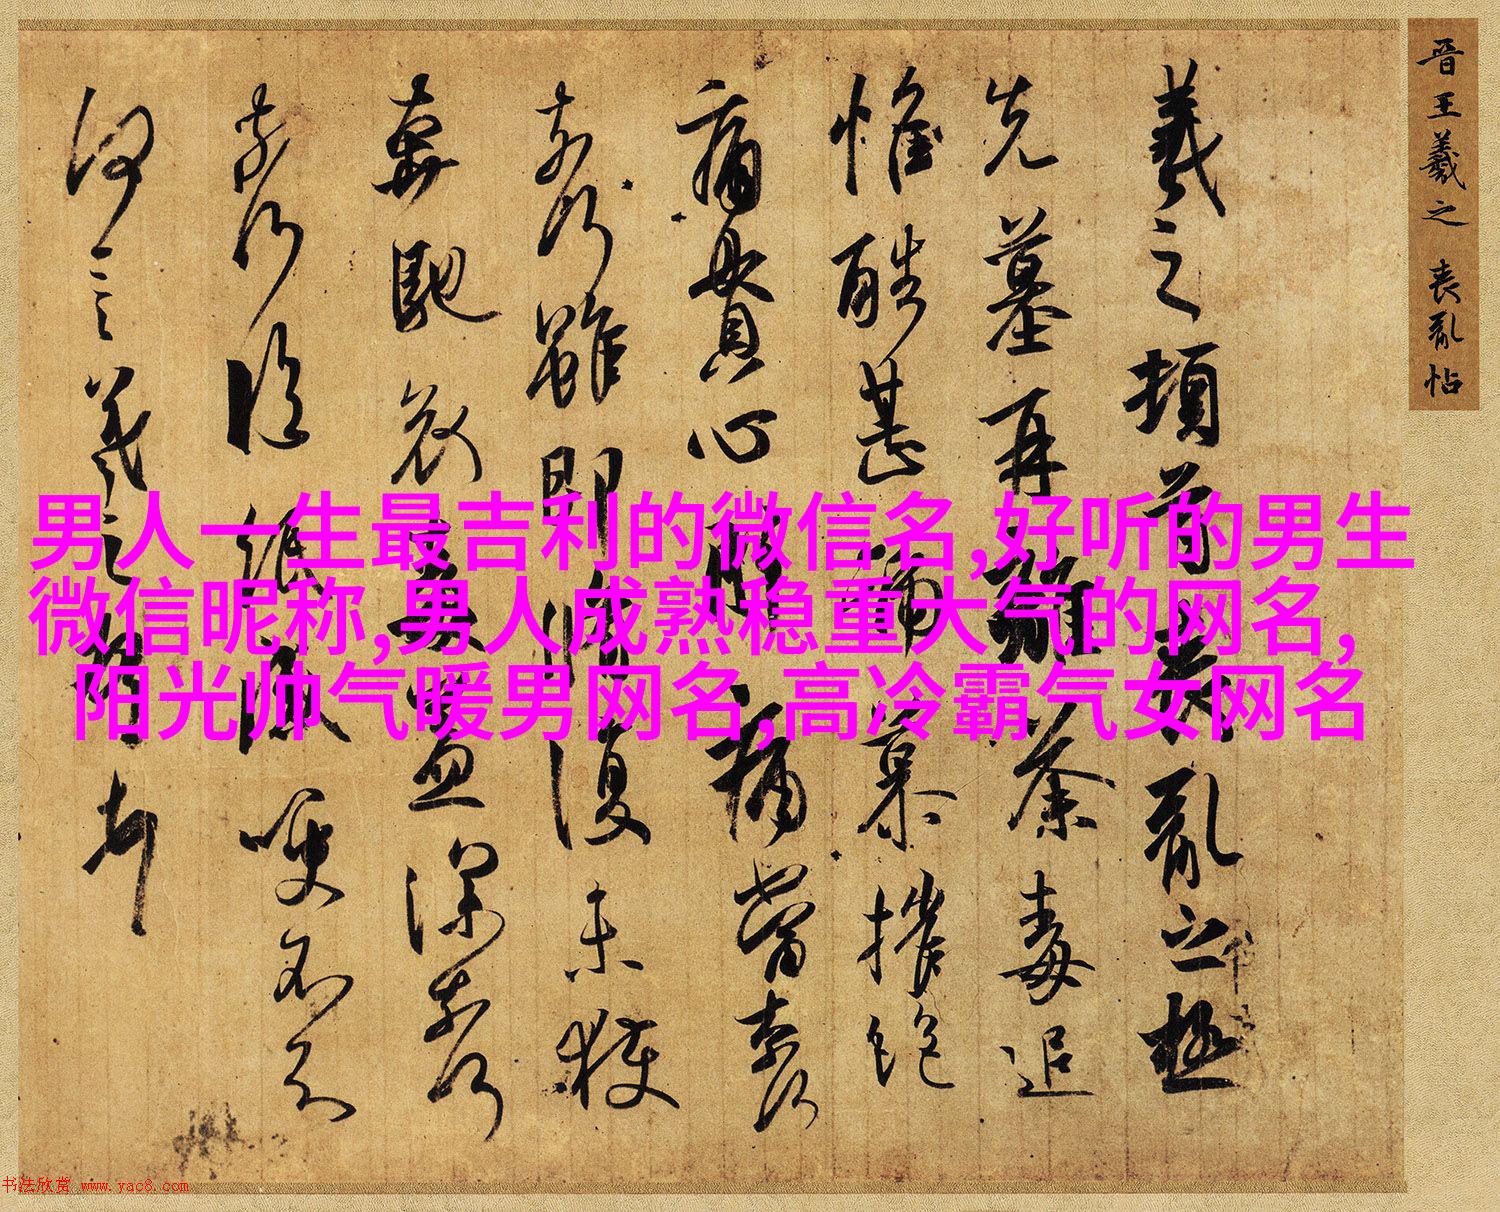 晋王羲之 丧亂帖
羲之頓首喪亂之極
先墓再離荼毒追
惟酷甚號慕摧絕
痛貫心肝痛當奈何
奈何雖即脩復未獲
奔馳哀毒益深奈何
奈何臨紙感哽不知
何言羲之頓首頓首
男人一生最吉利的微信名,好听的男生
微信昵称,男人成熟稳重大气的网名,
阳光帅气暖男网名,高冷霸气女网名
书法欣赏 www.yac8.com